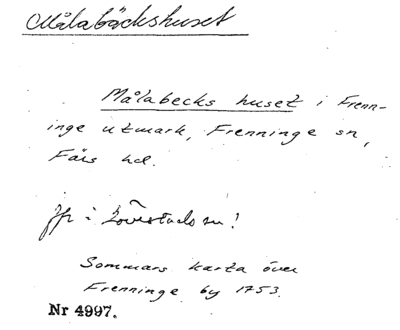 Målabäckshuset
Målabecks huset i Frenn-
inge utmark, Frenninge sn,
Färs hd.
Jfr i Lövestads sn!
Sommars karta över
Frenninge by 1753.
Nr 4997.